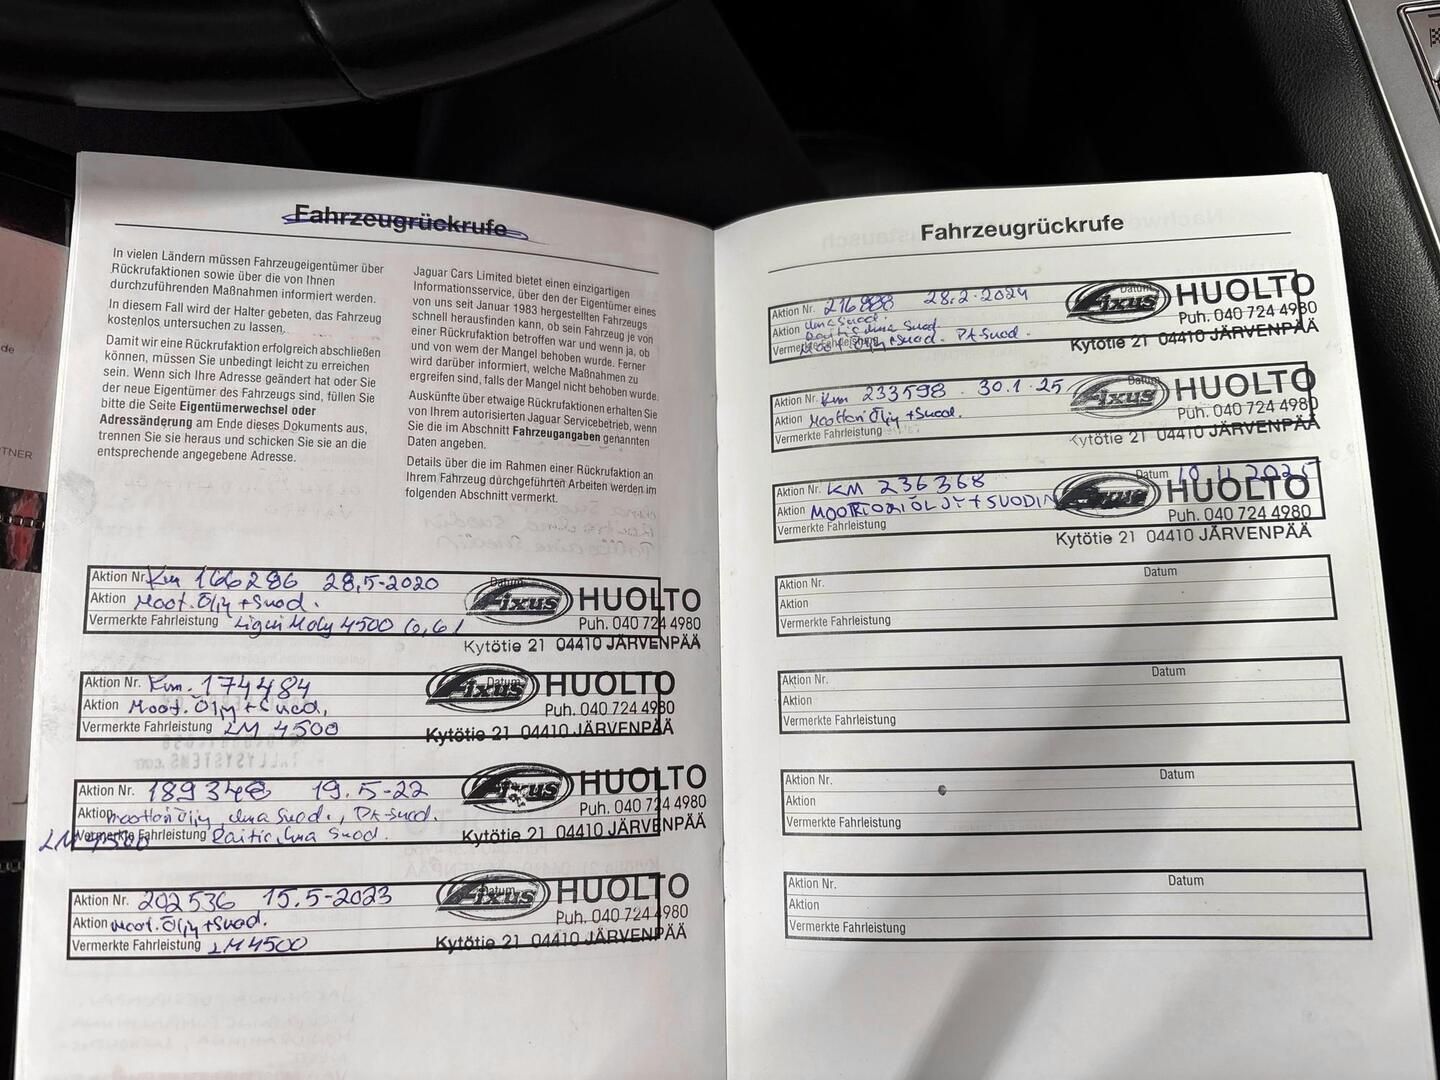 Fahrzeugrückrufe
In vielen Ländern müssen Fahrzeugeigentümer über
Rückrufaktionen sowie über die von Ihnen
durchzuführenden Maßnahmen informiert werden.
In diesem Fall wird der Halter gebeten, das Fahrzeug
kostenlos untersuchen zu lassen.
Damit wir eine Rückrufaktion erfolgreich abschließen
können, müssen Sie unbedingt leicht zu erreichen
sein. Wenn sich Ihre Adresse geändert hat oder Sie
der neue Eigentümer des Fahrzeugs sind, füllen Sie
bitte die Seite Eigentümerwechsel oder
Adressänderung am Ende dieses Dokuments aus,
trennen Sie sie heraus und schicken Sie sie an die
entsprechende angegebene Adresse.
Jaguar Cars Limited bietet einen einzigartigen
Informationsservice, über den der Eigentümer eines
von uns seit Januar 1983 hergestellten Fahrzeugs
schnell herausfinden kann, ob sein Fahrzeug je von
einer Rückrufaktion betroffen war und wenn ja, ob
und von wem der Mangel behoben wurde. Ferner
wird darüber informiert, welche Maßnahmen zu
ergreifen sind, falls der Mangel nicht behoben wurde.
Auskünfte über etwaige Rückrufaktionen erhalten Sie
von Ihrem autorisierten Jaguar Servicebetrieb, wenn
Sie die im Abschnitt Fahrzeugangaben genannten
Daten angeben.
Details über die im Rahmen einer Rückrufaktion an
Ihrem Fahrzeug durchgeführten Arbeiten werden im
folgenden Abschnitt vermerkt.
Aktion Nr. Km 166286 28.5-2020 Datum
Aktion Moot. Öljy + Suod.
Vermerkte Fahrleistung Liqui Moly 4500 6,6 l
Fixus HUOLTO
Puh. 040 724 4980
Kytötie 21 04410 JÄRVENPÄÄ
Aktion Nr. Km. 174484 Datum
Aktion Moot. Öljy + Suod.
Vermerkte Fahrleistung LM 4500
Fixus HUOLTO
Puh. 040 724 4980
Kytötie 21 04410 JÄRVENPÄÄ
Aktion Nr. 189348 19.5-22
Aktion Moottoriöljy, ilma Suod., PA-Suod.
Vermerkte Fahrleistung Raitis ilma Suod.
LM 4500
Fixus HUOLTO
Puh. 040 724 4980
Kytötie 21 04410 JÄRVENPÄÄ
Aktion Nr. 202536 15.5-2023 Datum
Aktion Moot. Öljy + Suod.
Vermerkte Fahrleistung LM 4500
Fixus HUOLTO
Puh. 040 724 4980
Kytötie 21 04410 JÄRVENPÄÄ
Fahrzeugrückrufe
Aktion Nr. 216888 28.2-2024 Datum
Aktion ilma Suod.
Raitis ilma Suod.
Vermerkte Fahrleistung Moot. Öljy + Suod. PA-Suod.
Fixus HUOLTO
Puh. 040 724 4980
Kytötie 21 04410 JÄRVENPÄÄ
Aktion Nr. Km 233598 30.1-25 Datum
Aktion Moottori Öljy + Suod.
Vermerkte Fahrleistung
Fixus HUOLTO
Puh. 040 724 4980
Kytötie 21 04410 JÄRVENPÄÄ
Aktion Nr. KM 236368 Datum 10.11.2025
Aktion MOOTTORIÖLJY + SUODIN
Vermerkte Fahrleistung
Fixus HUOLTO
Puh. 040 724 4980
Kytötie 21 04410 JÄRVENPÄÄ
Aktion Nr. Datum
Aktion
Vermerkte Fahrleistung
Aktion Nr. Datum
Aktion
Vermerkte Fahrleistung
Aktion Nr. Datum
Aktion
Vermerkte Fahrleistung
Aktion Nr. Datum
Aktion
Vermerkte Fahrleistung